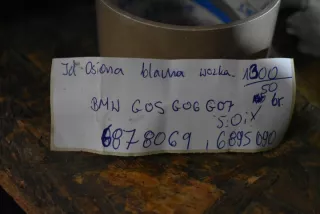 Jet-Osiona blauna wozka 1300
50
BMW G05 G06 G07 br
5.0iX
6878069, 6895090